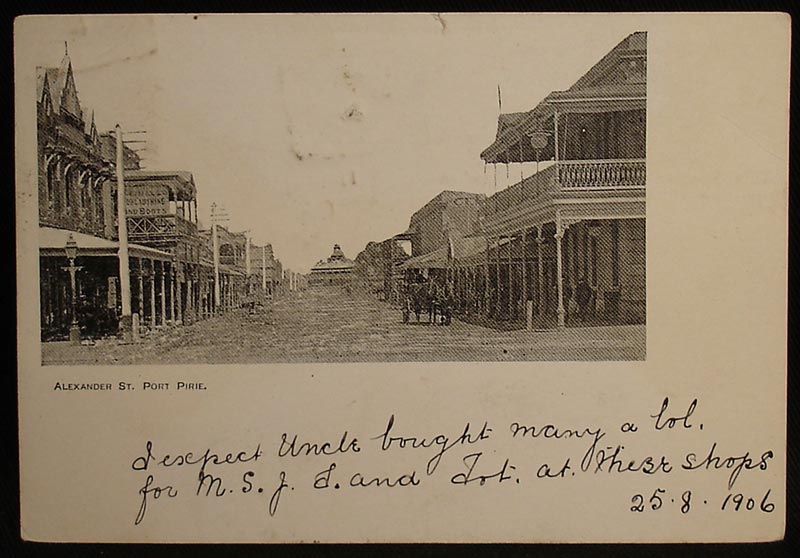 CLOTHING
AND BOOTS
ALEXANDER ST. PORT PIRIE.
I expect Uncle bought many a lol.
for M. S. J. I. and Tot. at these shops
25.8.1906